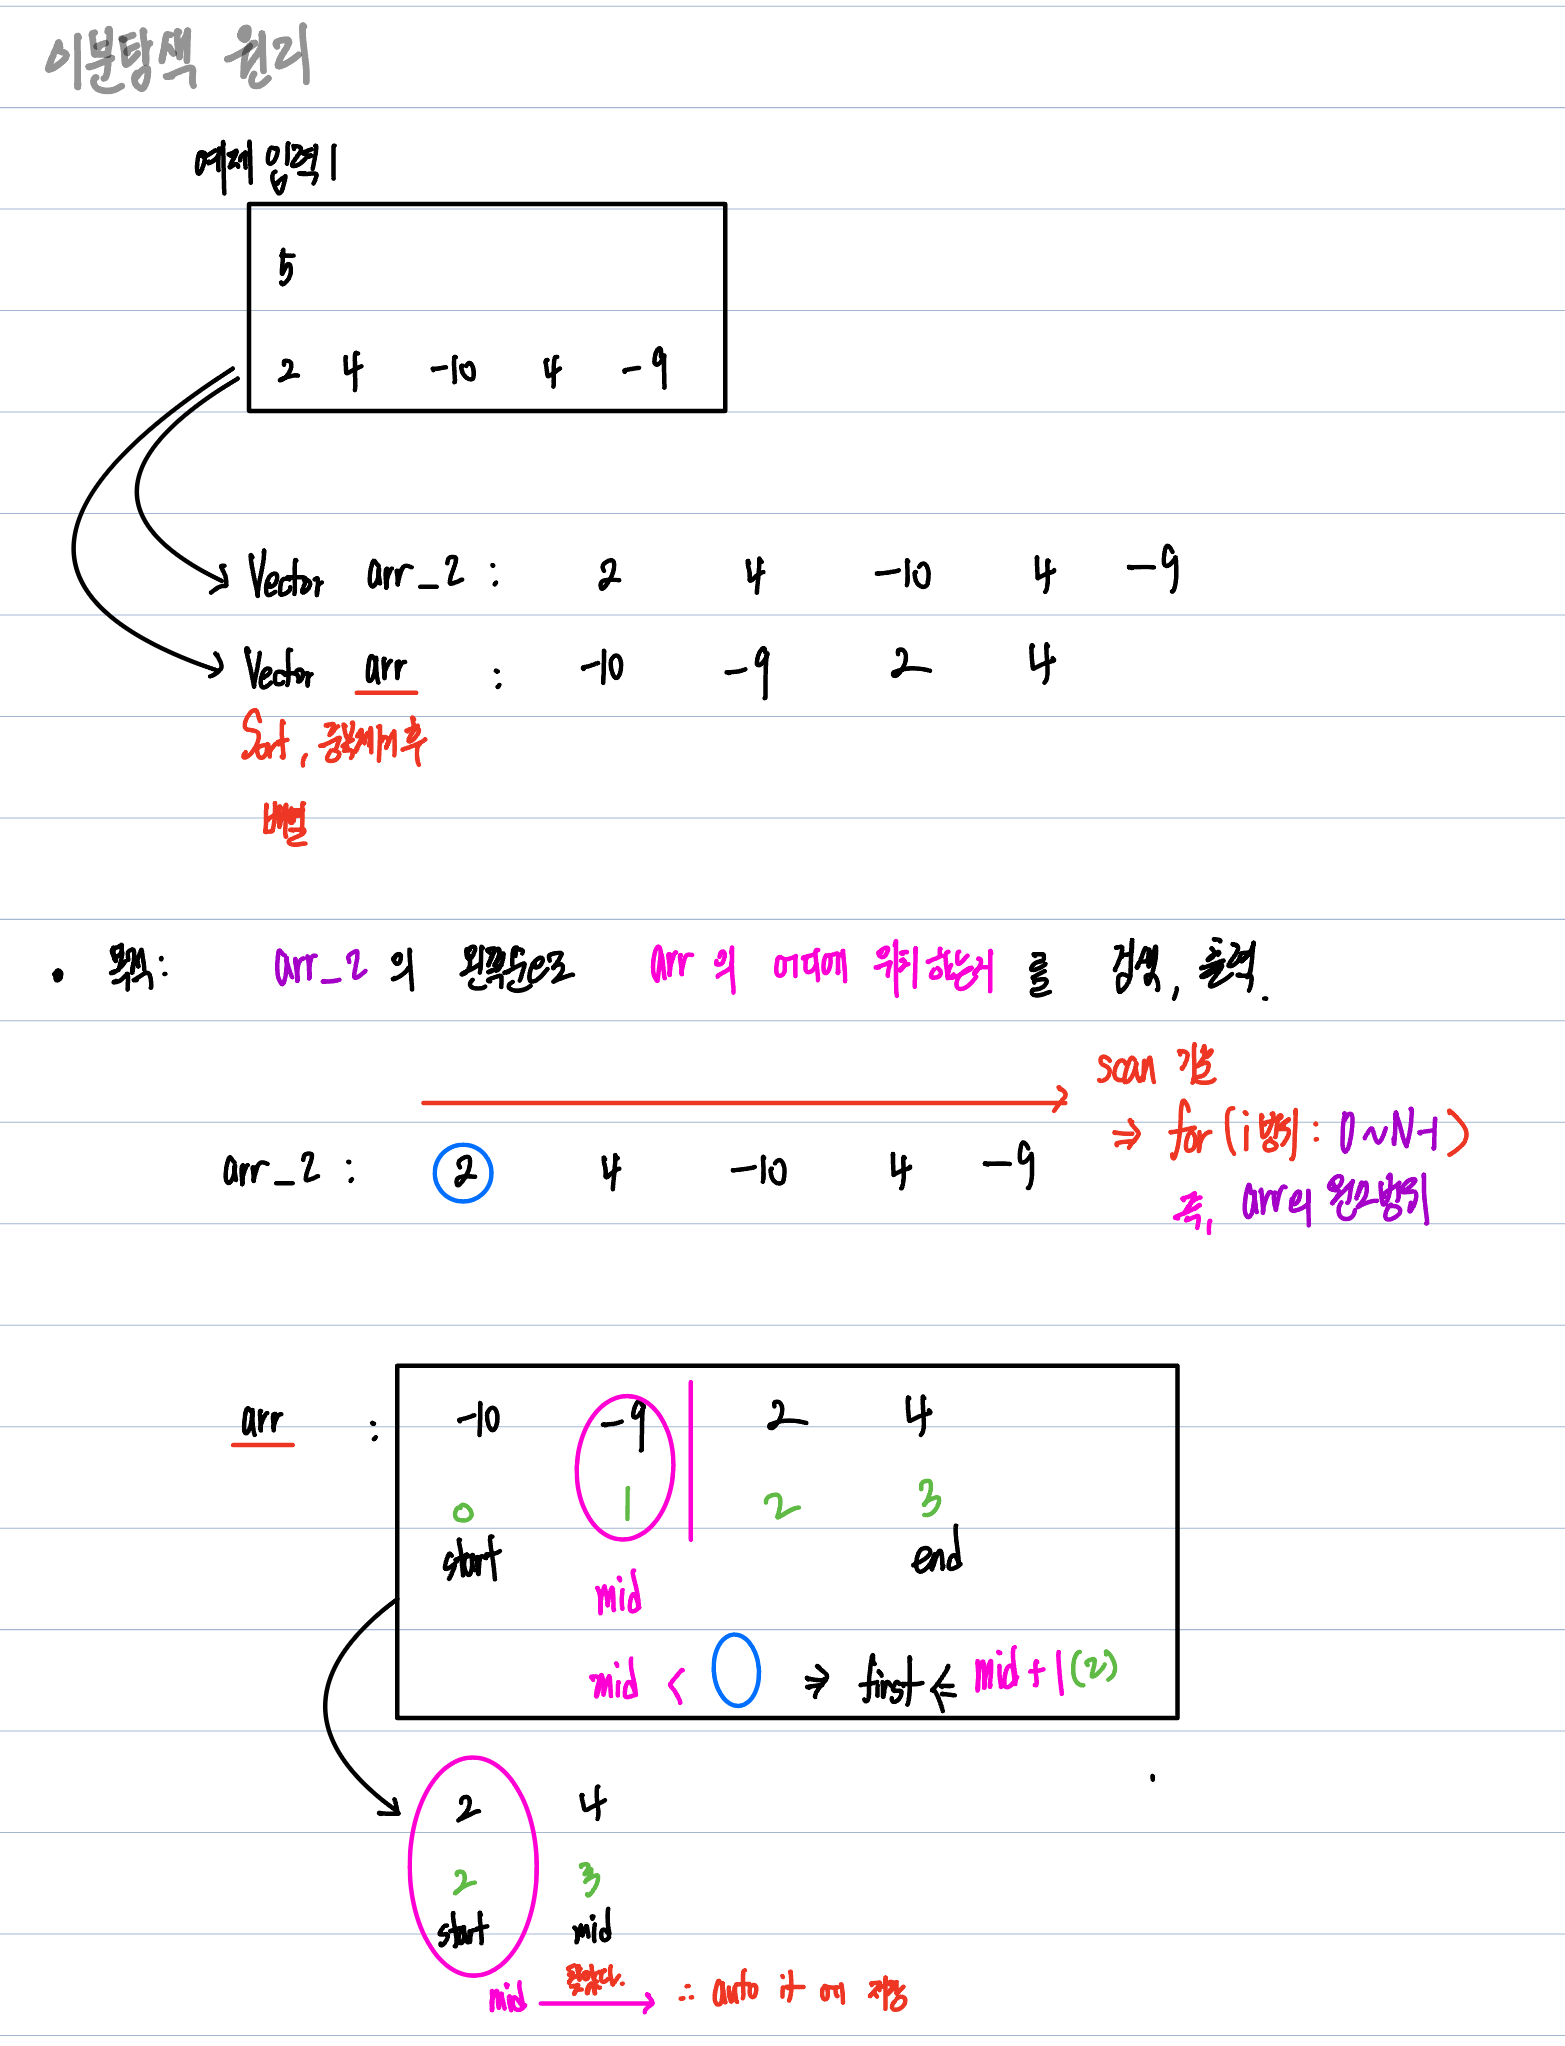 이분탐색 원리
예제 입력 1
5
2 4 -10 4 -9
Vector arr_2 : 2 4 -10 4 -9
Vector arr : -10 -9 2 4
Sort, 중복제거 후
배열
• 목적: arr_2 의 왼쪽부터 arr 의 어디에 위치하는지 를 검색, 출력.
scan 기준
arr_2 : 2 4 -10 4 -9
⇒ for (i 범위 : 0 ~ N-1)
즉, arr의 원소범위
arr : -10 -9 2 4
0 1 2 3
start end
mid
mid < ⇒ first ⇐ mid + 1 (2)
2 4
2 3
start mid
mid 찾았다. ∴ auto it 에 저장